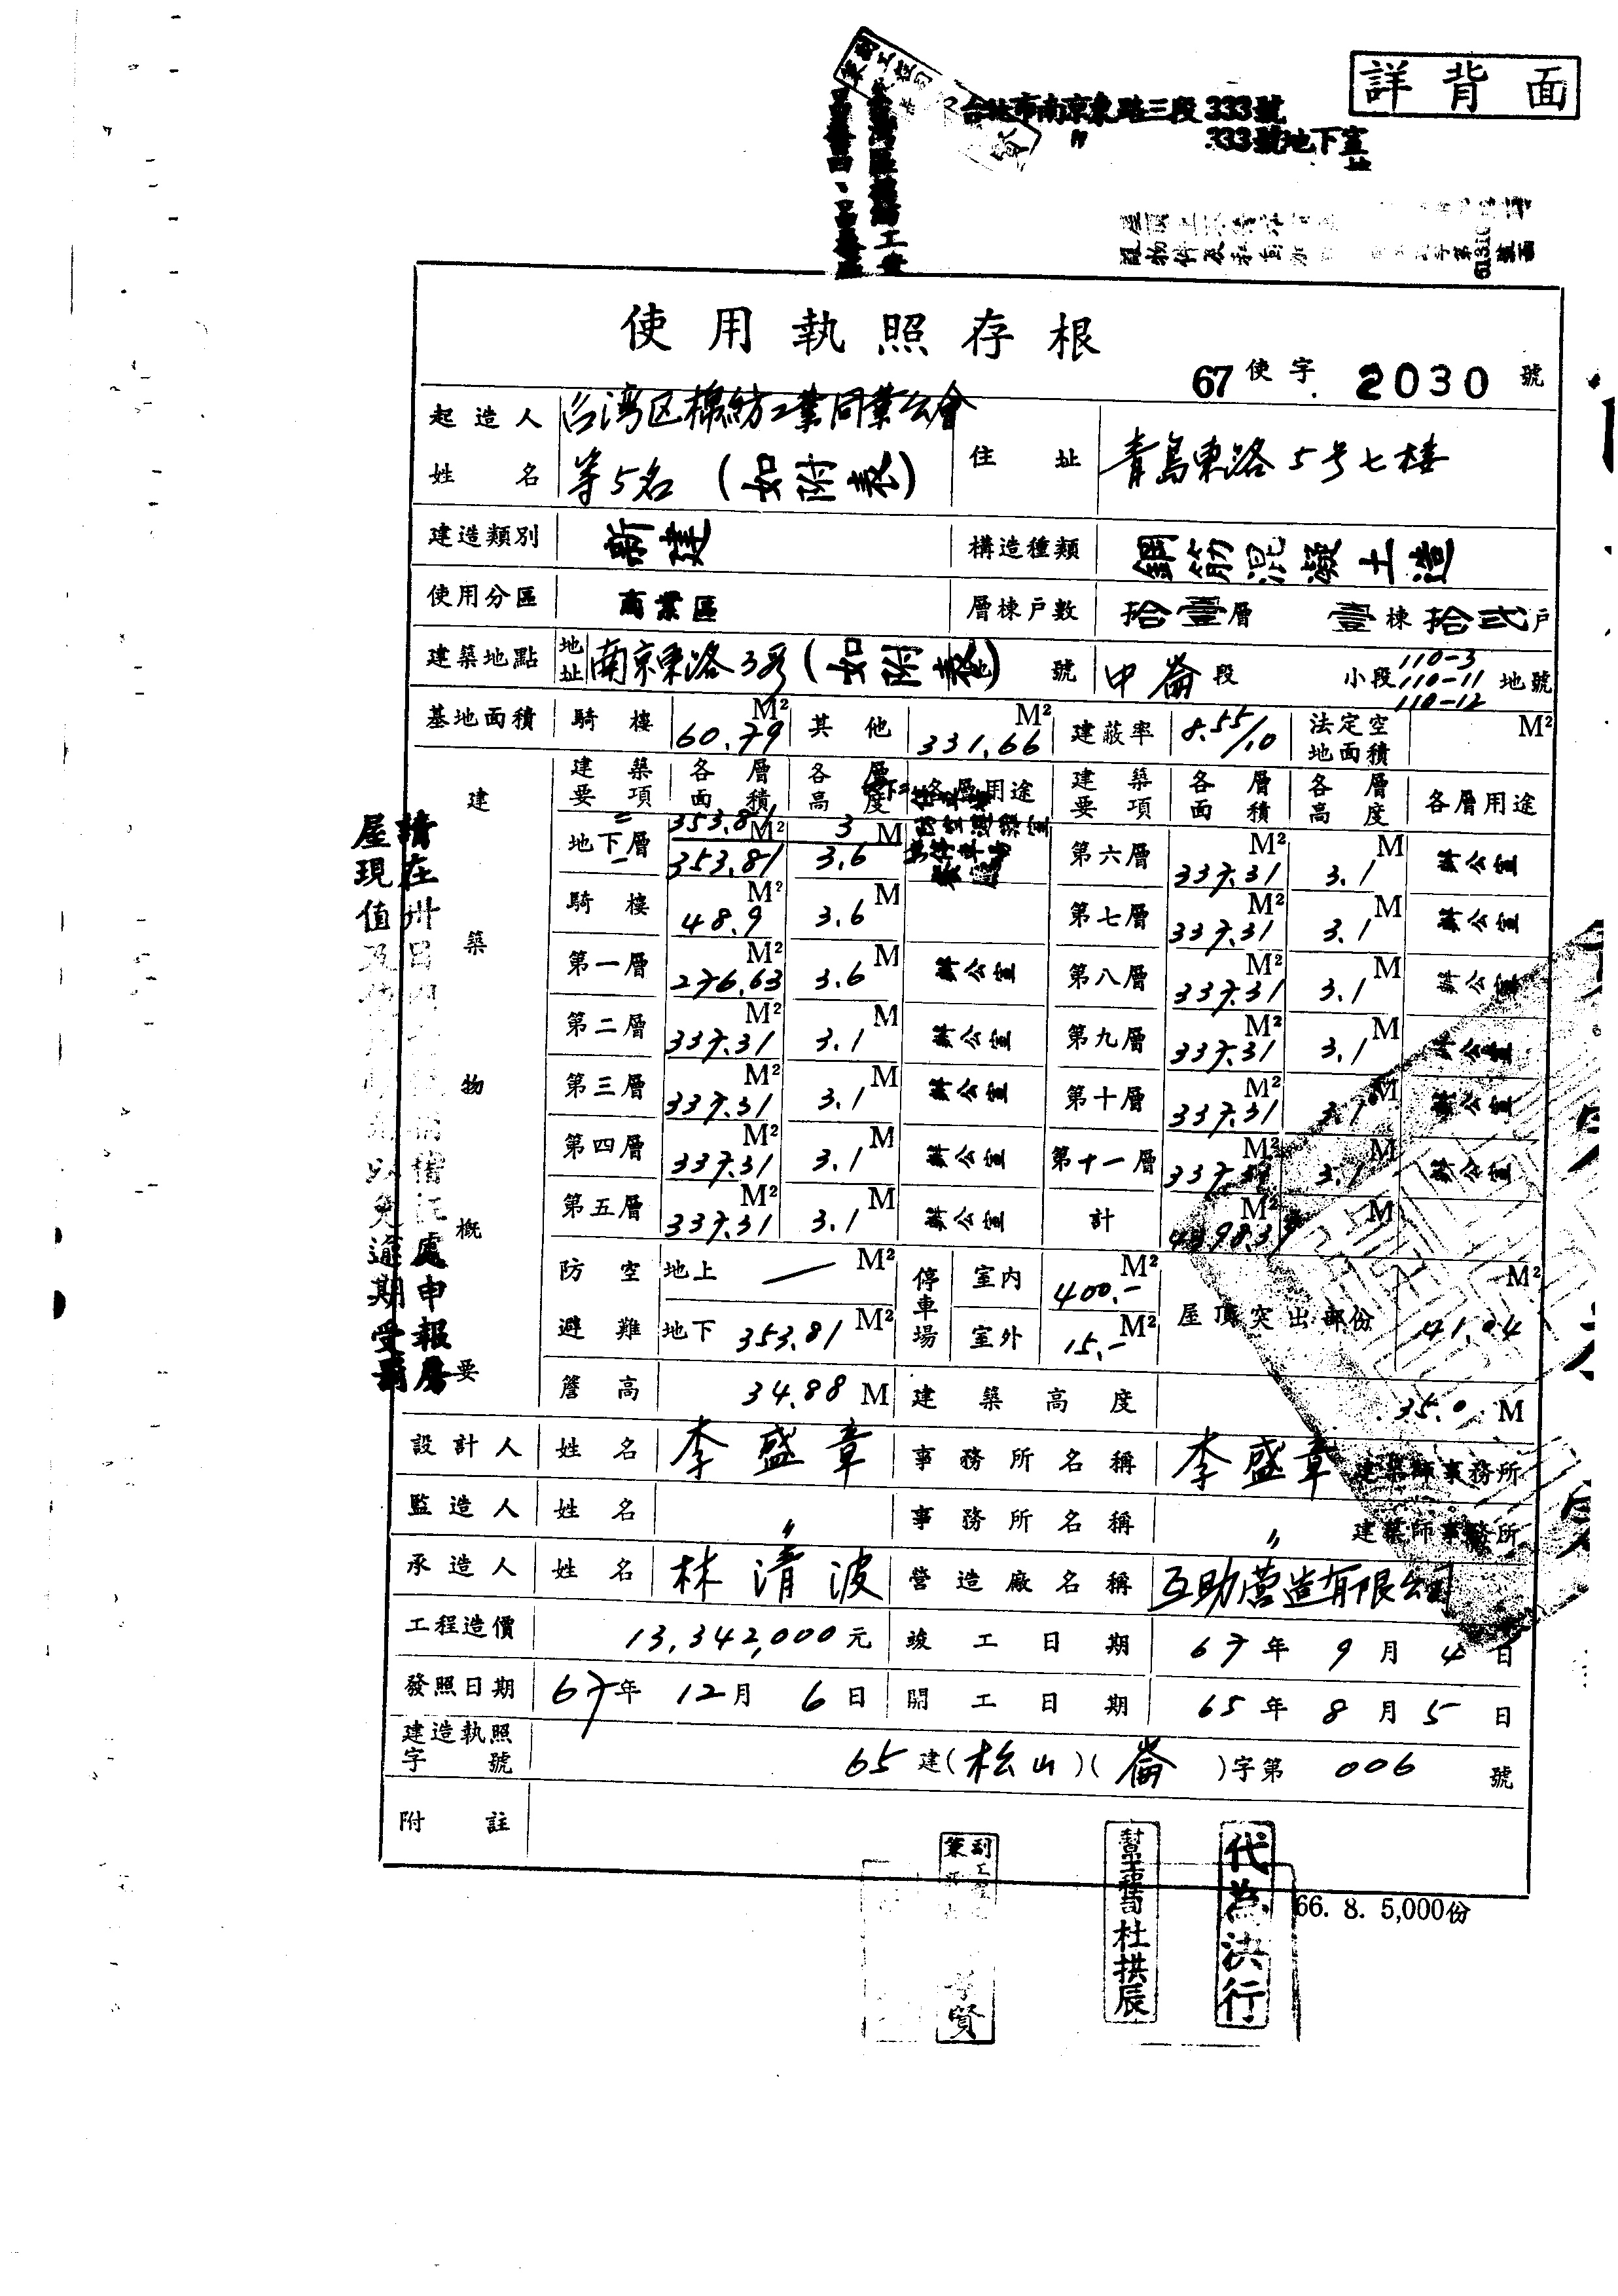 詳背面
台北市南京東路三段333號
〃 333號地下室
使用執照存根
67使字.2030號
起造人姓名 台湾区棉紡工業同業公會等5名(如附表) 住址 青島東路5号七楼
建造類別 新建 構造種類 鋼筋混凝土造
使用分區 商業區 層棟戶數 拾壹層 壹棟拾弍戶
建築地點 地址 南京東路3段(如附表) 地號 中崙段 小段 110-3 110-11 110-12 地號
基地面積 騎樓 60.79 M² 其他 331.66 M² 建蔽率 8.55/10 法定空地面積 M²
建築物概要
建築要項 各層面積 各層高度 各層用途 建築要項 各層面積 各層高度 各層用途
地下層 二 353.81 M² 3 M
一 353.81 3.6 第六層 337.31 M² 3.1 M 辦公室
騎樓 48.9 M² 3.6 M 第七層 337.31 M² 3.1 M 辦公室
第一層 276.63 M² 3.6 M 辦公室 第八層 337.31 M² 3.1 M 辦公室
第二層 337.31 M² 3.1 M 辦公室 第九層 337.31 M² 3.1 M 辦公室
第三層 337.31 M² 3.1 M 辦公室 第十層 337.31 M² 3.1 M 辦公室
第四層 337.31 M² 3.1 M 辦公室 第十一層 337.31 M² 3.1 M 辦公室
第五層 337.31 M² 3.1 M 辦公室 計 M² M
防空避難 地上 — M² 停車場 室內 400.- M² 屋頂突出部份 41.04 M²
地下 353.81 M² 室外 15.- M²
簷高 34.88 M 建築高度 35.0 M
設計人 姓名 李盛章 事務所名稱 李盛章建築師事務所
監造人 姓名 〃 事務所名稱 〃 建築師事務所
承造人 姓名 林清波 營造廠名稱 互助營造有限公司
工程造價 13,342,000元 竣工日期 67年9月4日
發照日期 67年12月6日 開工日期 65年8月5日
建造執照字號 65建(松山)(崙)字第006號
附註
代為決行
杜拱辰
66. 8. 5,000份